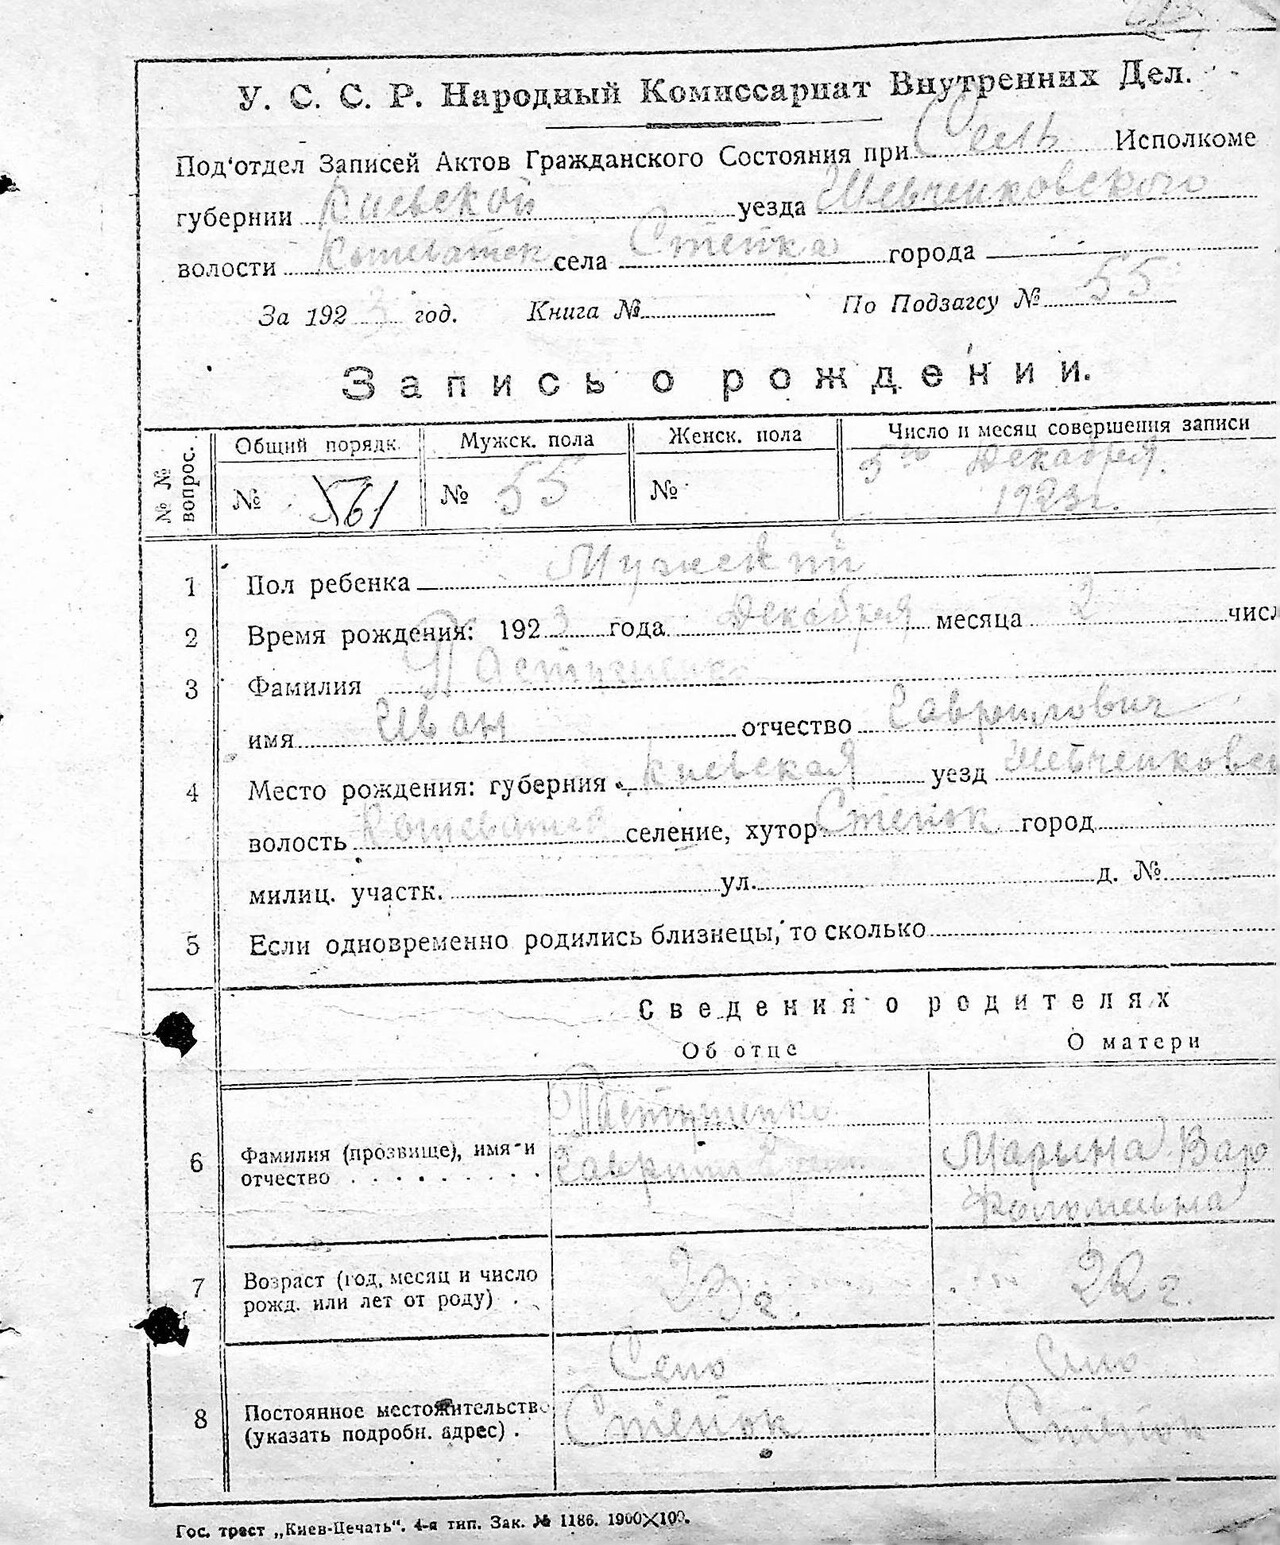 У. С. С. Р. Народный Комиссариат Внутренних Дел.
Под'отдел Записей Актов Гражданского Состояния при Сель Исполкоме
губернии Киевской уезда Шевченковского
волости Кошеватск села Степка города
За 1923 год. Книга № По Подзагсу № 55
Запись о рождении.
№ № вопрос.
Общий порядк. Мужск. пола Женск. пола Число и месяц совершения записи
№ 561 № 55 № 5го Декабря
1923г.
1 Пол ребенка Мужской
2 Время рождения: 1923 года Декабря месяца 2 числ
3 Фамилия
имя Иван отчество Гаврилович
4 Место рождения: губерния Киевская уезд Шевченковск
волость селение, хутор Степок город
милиц. участк. ул. д. №
5 Если одновременно родились близнецы, то сколько
Сведения о родителях
Об отце О матери
6 Фамилия (прозвище), имя и отчество
Марына Вар
7 Возраст (год, месяц и число рожд. или лет от роду) . 23 г. 22 г.
8 Постоянное местожительство (указать подробн. адрес) .
Село
Степок Степок
Гос. трест „Киев-Печать“. 4-я тип. Зак. № 1186. 1900×100.